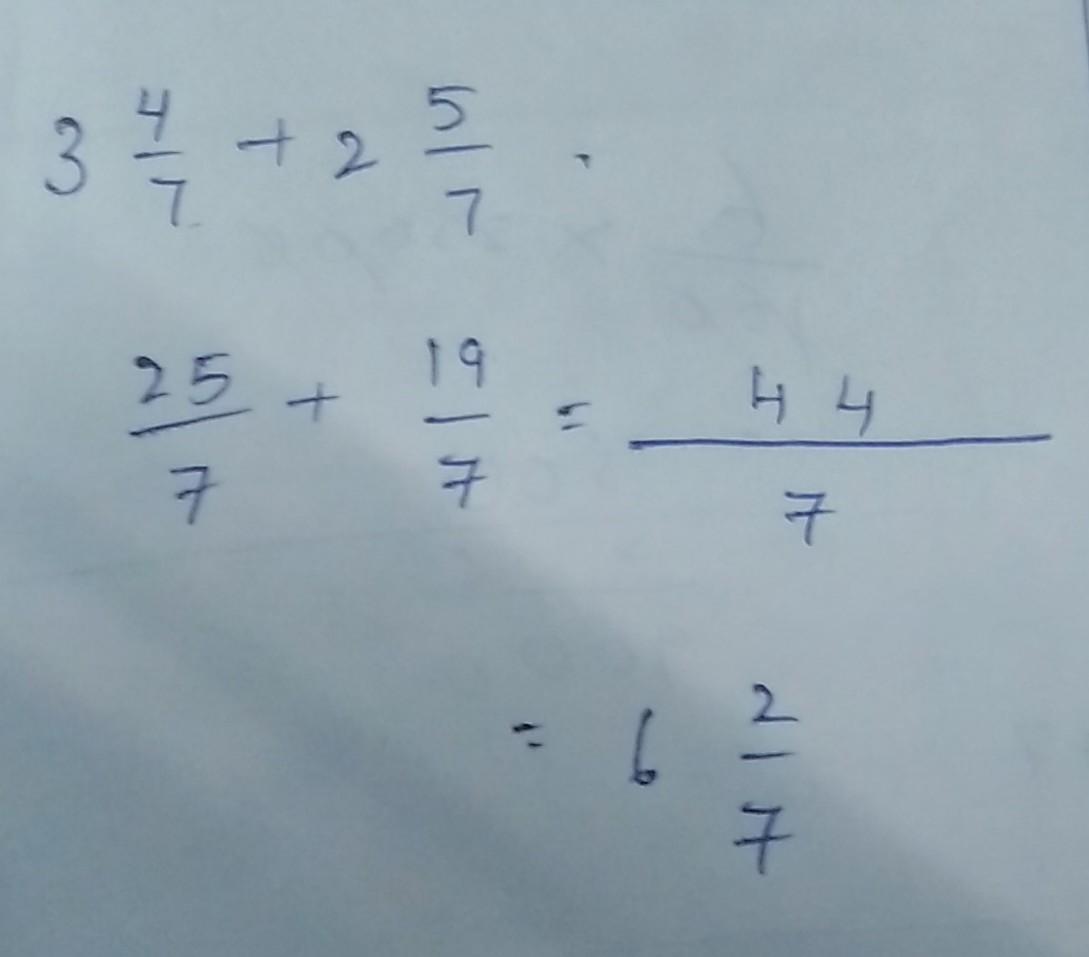 3 4/7 + 2 5/7 .
25/7 + 19/7 = 44/7
= 6 2/7